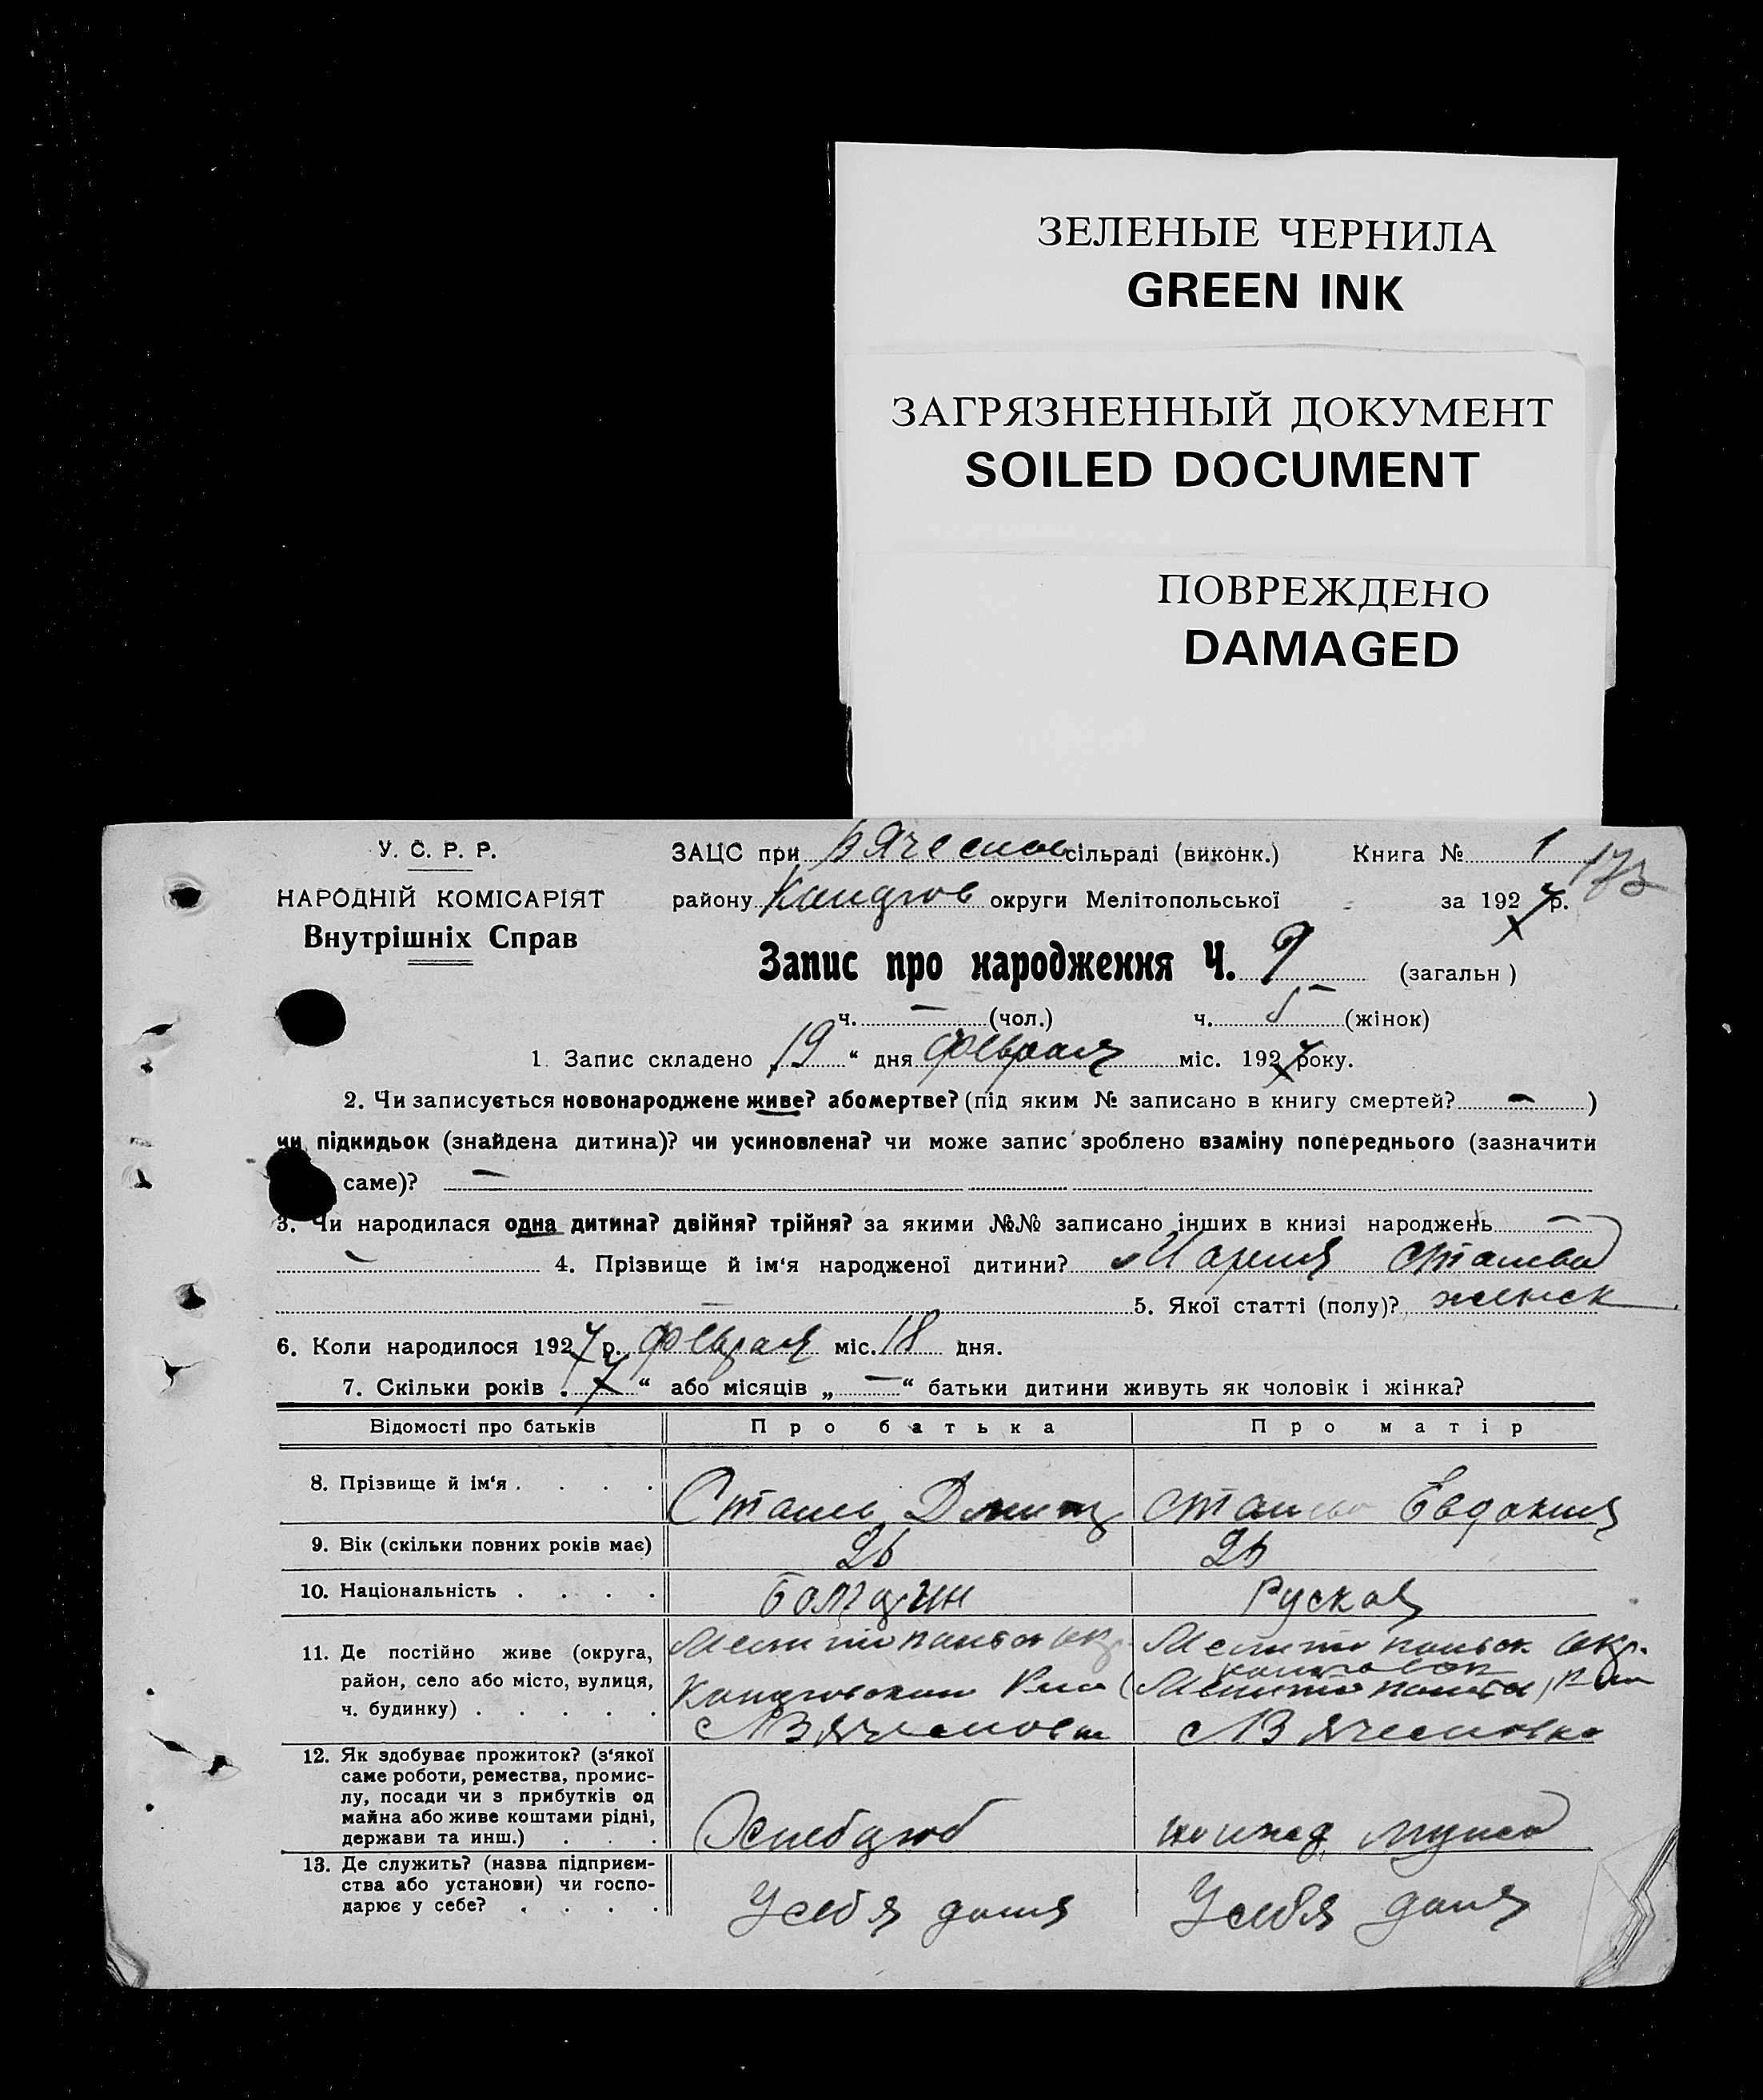 ЗЕЛЕНЫЕ ЧЕРНИЛА
GREEN INK
ЗАГРЯЗНЕННЫЙ ДОКУМЕНТ
SOILED DOCUMENT
ПОВРЕЖДЕНО
DAMAGED
У. С. Р. Р.
НАРОДНІЙ КОМІСАРІЯТ
Внутрішніх Справ
ЗАЦС при сільраді (виконк.) Книга № 1 173
району округи Мелітопольської за 1927 р.
Запис про народження Ч. 9 (загальн)
ч. — (чол.) ч. 5 (жінок)
1. Запис складено „19“ дня февраля міс. 1927 року.
2. Чи записується новонароджене живе? або мертве? (під яким № записано в книгу смертей? — )
чи підкидьок (знайдена дитина)? чи усиновлена? чи може запис зроблено взаміну попереднього (зазначити
саме)? —
3. Чи народилася одна дитина? двійня? трійня? за якими №№ записано інших в книзі народжень —
— 4. Прізвище й ім‘я народженої дитини? Мария Станева
— 5. Якої статті (полу)? женск
6. Коли народилося 1927 р. февраля міс. 18 дня.
7. Скільки років „7“ або місяців „—“ батьки дитини живуть як чоловік і жінка?
Відомості про батьків Про батька Про матір
8. Прізвище й ім‘я . . . . Станев Станева Евдокия
9. Вік (скільки повних років має) 26 26
10. Національність . . . . Болгарин Руская
11. Де постійно живе (округа,
район, село або місто, вулиця,
ч. будинку) . . . . .
Мелитопольск окр. Мелитопольск окр.
12. Як здобуває прожиток? (з‘якої
саме роботи, ремества, промис-
лу, посади чи з прибутків од
майна або живе коштами рідні,
держави та инш.) . . .
Хлебороб на ижд. мужа
13. Де служить? (назва підприєм-
ства або установи) чи госпо-
дарює у себе? . . . .
У себя дома У себя дома